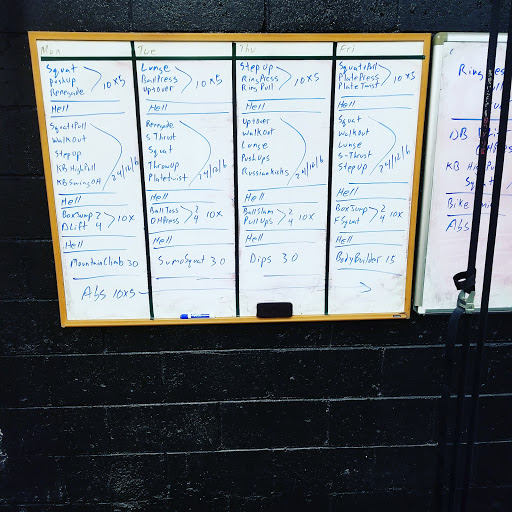 Mon
Squat
Pushup
Renegade
10x5
Hell
Squat+Pull
Walkout
Step up
KB High Pull
KB Swing OH
24/12/6
Hell
Box Jump 2
DLift 4
10x
Hell
Mountain Climb 30
Abs 10x5
Tue
Lunge
Ball Press
Up+over
10x5
Hell
Renegade
S-Thrust
Squat
Throw Up
Plate twist
24/12/6
Hell
Ball Toss 2
OH Press 4
10x
Hell
Sumo Squat 30
Thu
Step up
Ring Press
Ring Pull
10x5
Hell
Up+over
Walk Out
Lunge
Push Ups
Russian kicks
24/12/6
Hell
Ball Slam 2
Pull Ups 4
10x
Hell
Dips 30
Fri
Squat+Pull
Plate Press
Plate Twist
10x5
Hell
Squat
Walkout
Lunge
S-Thrust
Step up
24/12/6
Hell
Box Jump 2
F Squat 4
10x
Hell
Body Builder 15
Ring
DB
KB High
Squat
Bike
Abs